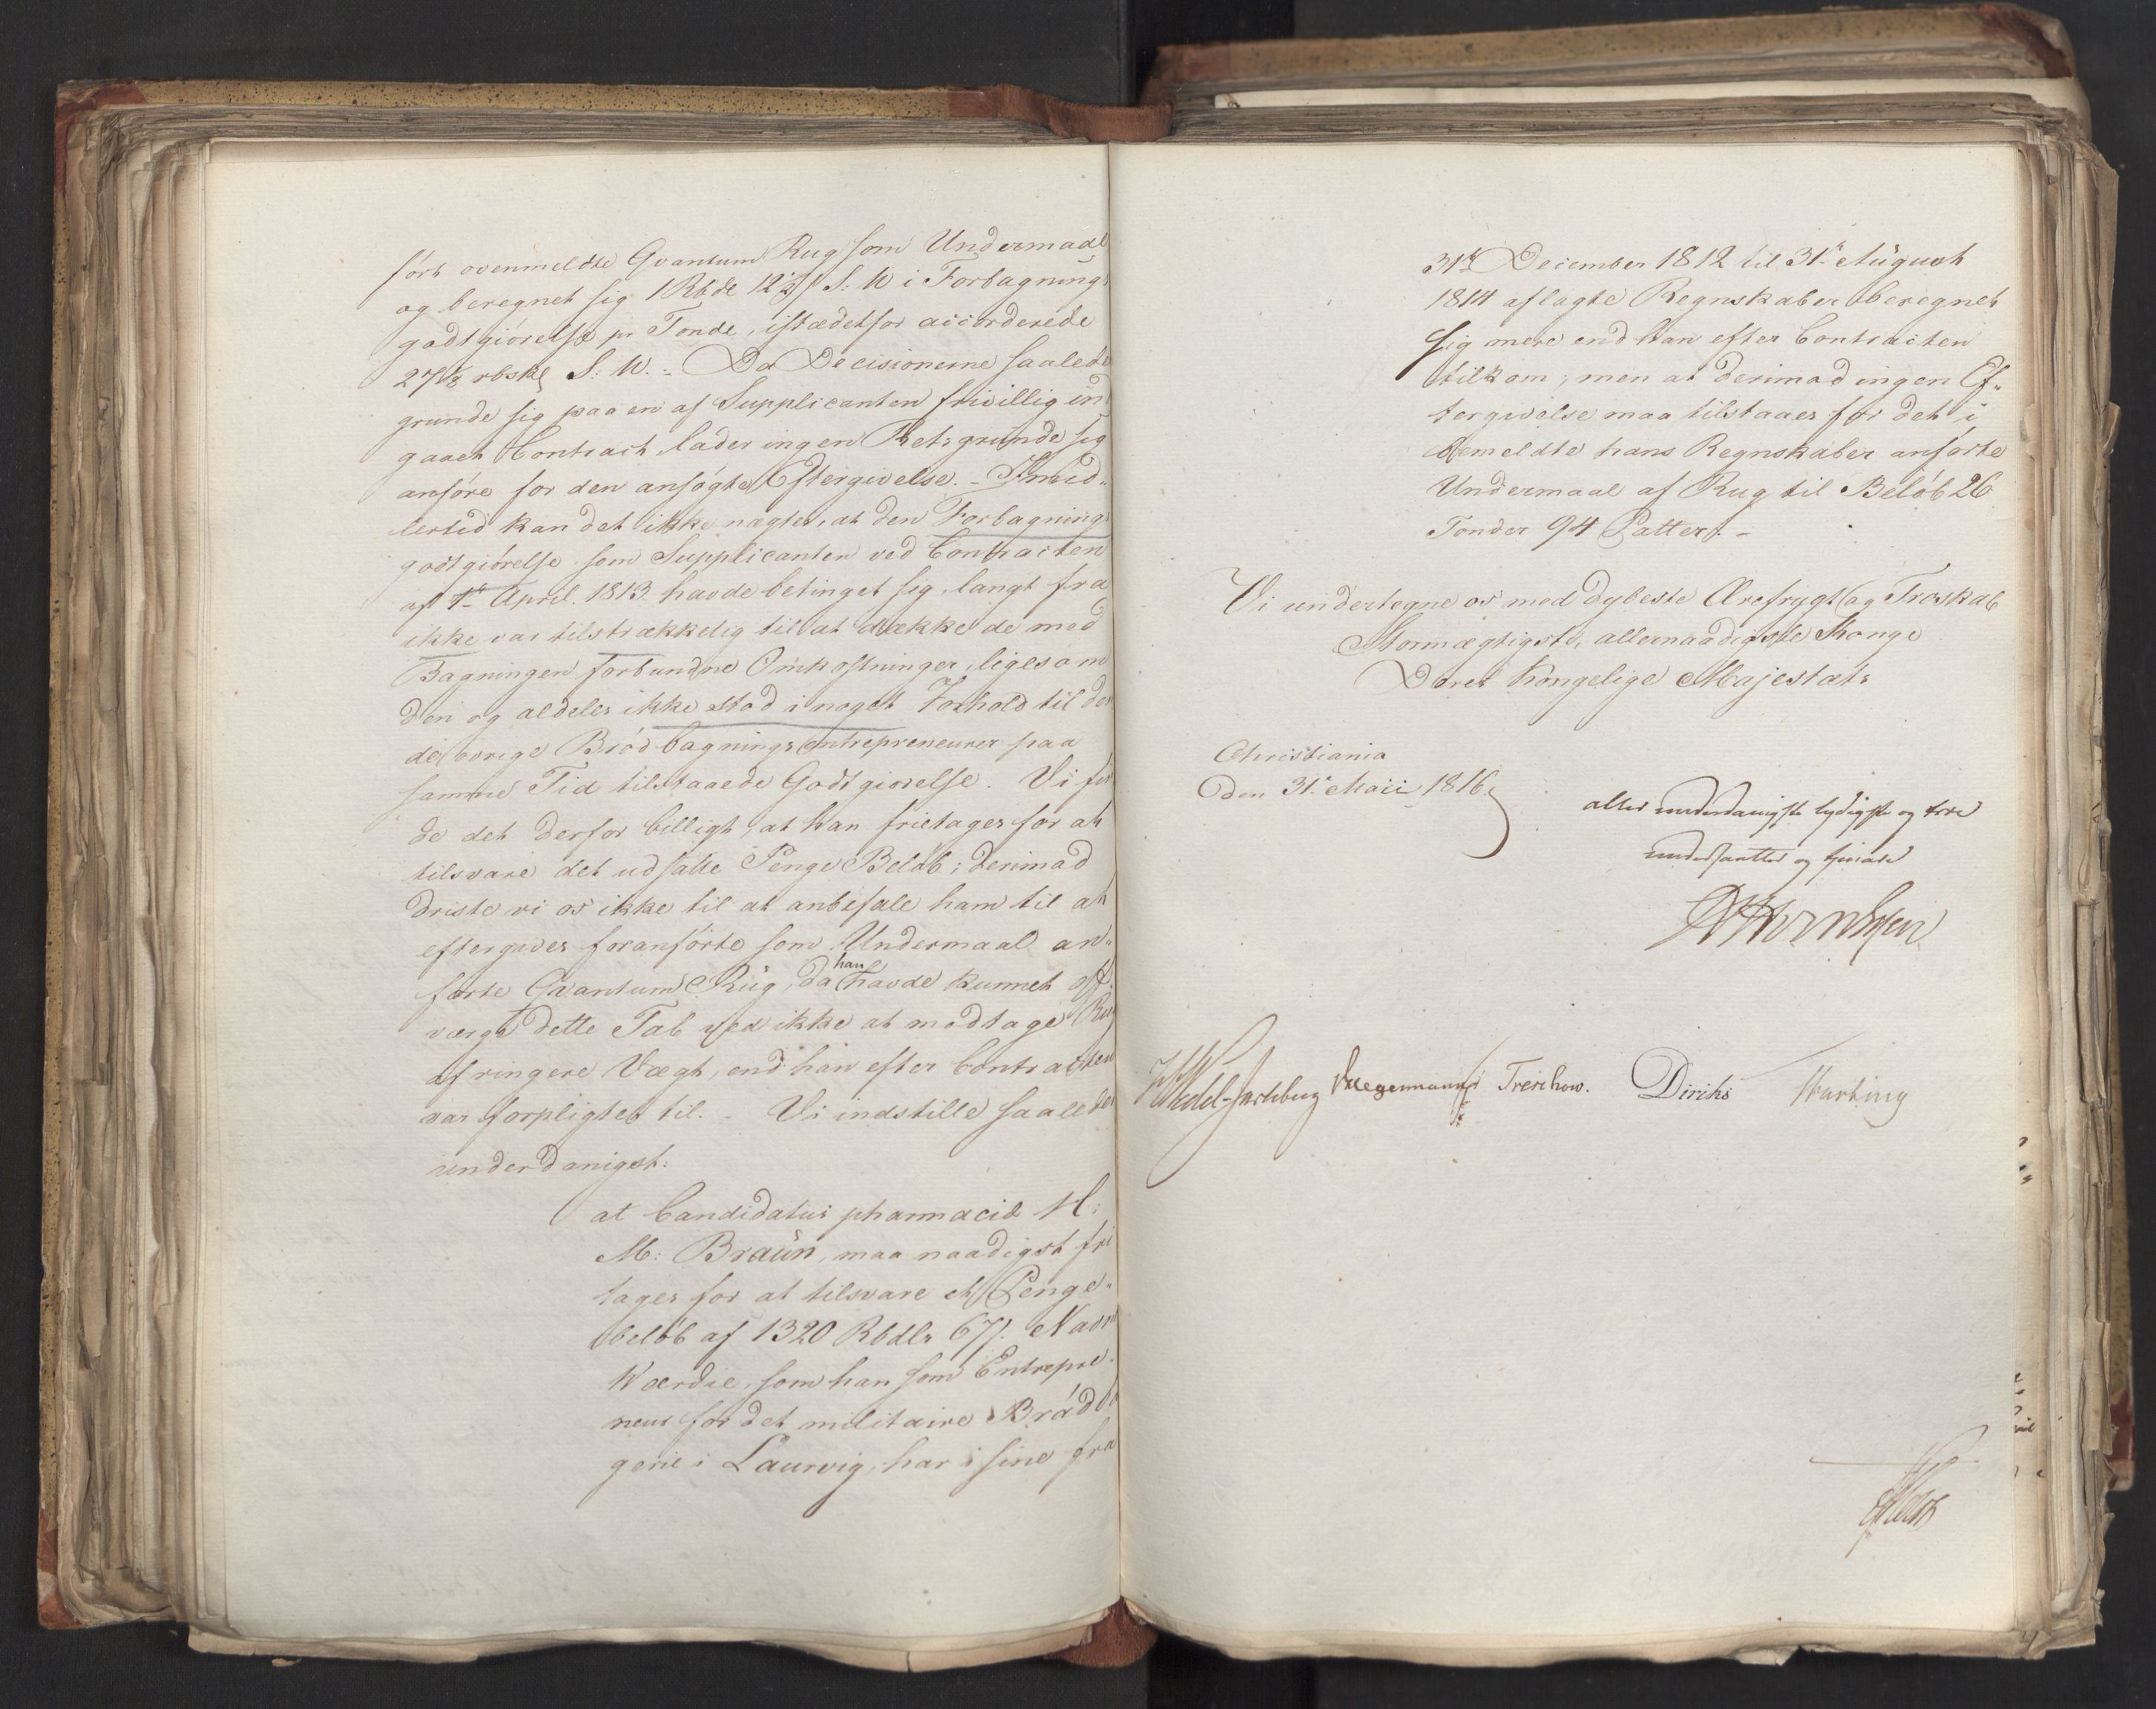 ført ovenmeldte Qvantum Rug som Undermaal
og beregnet sig 1 Rbdl 12½ s S: W i Forbagnings
godtgiörelse pr Tönde, istædetfor accorderede
27⅛ rbsk S: W. - Da Decisionerne saalede
grunde sig paa en af Supplicanten frivillig ind
gaaet Contract, lader ingen Retsgrunde sig
anføre for den ansøgte Eftergivelse. - Imid-
lertid kan det ikke nægtes, at den Forbagnings
godtgiörelse som Supplicanten ved Contracten
af 1ste April 1813 havde betinget sig, langt fra
ikke var tilstrækkelig til at dække de med
Bagningen forbundne Omkostninger, ligesom
den og aldeles ikke stod i noget Forhold til den
de övrige Brödbagningsentrepreneurer paa
samme Tid tilstaaede Godtgiörelse. Vi fin
de det derfor billigt, at han fritages for at
tilsvare det udsatte Penge Beløb; derimod
driste vi os ikke til at anbefale ham til at
eftergives foranførte som Undermaal an-
førte Qvantum Rug, da han havde kunnet aff
værge dette Tab ved ikke at modtage Rug
af ringere Vægt, end han efter Contracten
var forpligtet til. - Vi indstille saaledes
underdanigst:
at Candidatus pharmaciæ H:
M: Braun, maa naadigst fri
tages for at tilsvare et Penge-
beløb af 1320 Rbdlr 67 s. Navne
Wærdie, som han som Entrepre-
neur for det militaire Brødba
gerie i Laurvig, har i sine fra
31te December 1812 til 31te August
1814 aflagte Regnskaber beregnet
sig mere end han efter Contracten
tilkom; men at derimod ingen Ef-
tergivelse maa tilstaaes for det i
bemeldte hans Regnskaber anførte
Undermaal af Rug til Beløb 26
Tönder 94 Potter. -
Vi undertegne os med dybeste Ærefrygt og Troskab
Stormægtigste, allernaadigste Konge
Deres Kongelige Majestæts
Christiania
den 31te Maii 1816
allerunderdanigste lydigste og troe
undersaatter og tjenere
Wedel-Jarlsberg Hegermann Treschow. Diriks